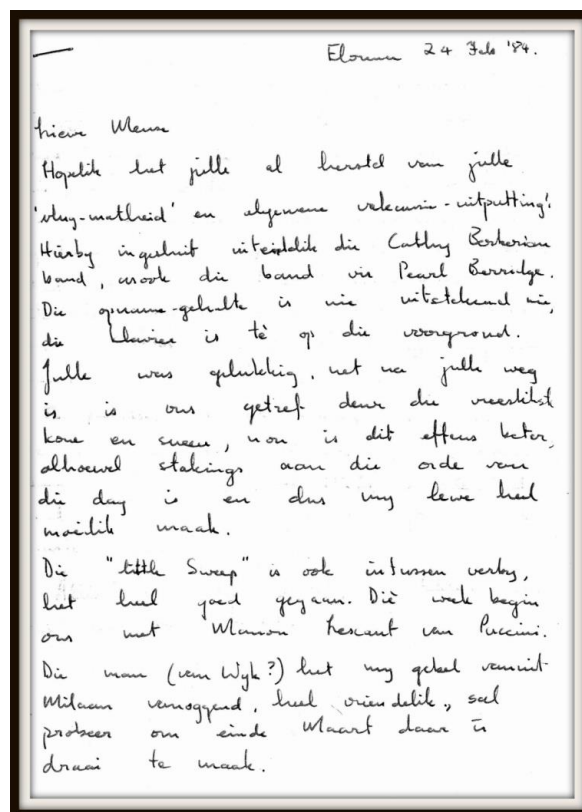 24 Feb '84.
Lieve Mense
Hopelik het julle al herstel van julle
'vlug-matheid' en algemene vakansie-uitputting!
Hierby ingesluit uiteindelik die Cathy Berberian
band, asook die band vir Pearl Berridge.
Die opname-gehalte is nie uitstekend nie,
die klavier is tè op die voorgrond.
Julle was gelukkig, net na julle weg
is is ons getref deur die vreeslikste
koue en sneeu, nou is dit effens beter,
alhoewel stakings aan die orde van
die dag is en dus my lewe heel
moeilik maak.
Die "Little Sweep" is ook intussen verby,
het heel goed gegaan. Diè week begin
ons met Manon Lescaut van Puccini.
Die man (van Wyk?) het my gebel vanuit
Milaan vanoggend, heel vriendelik, sal
probeer om einde Maart daar 'n
draai te maak.